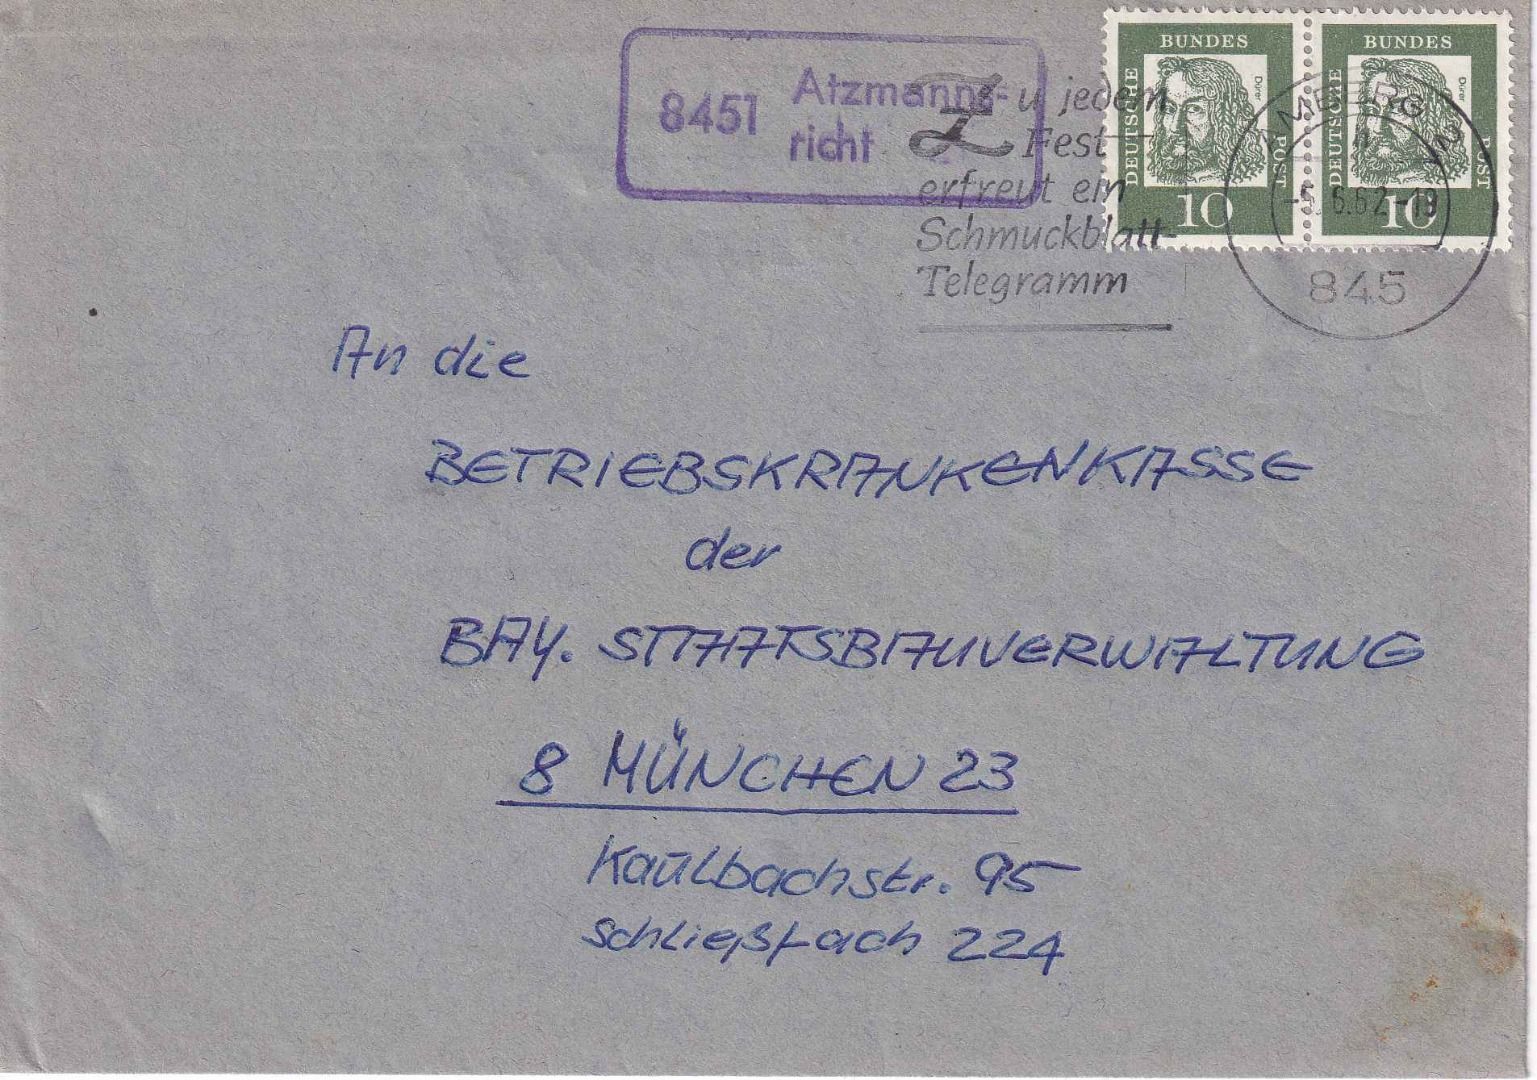 8451 Atzmanns-
richt
Zu jedem
Fest
erfreut ein
Schmuckblatt-
Telegramm
DEUTSCHE BUNDES POST
Dürer
10
DEUTSCHE BUNDES POST
Dürer
10
AMBERG 2
-5.6.62-19
845
An die
BETRIEBSKRANKENKASSE
der
BAY. STAATSBAUVERWALTUNG
8 MÜNCHEN 23
Kaulbachstr. 95
Schließfach 224